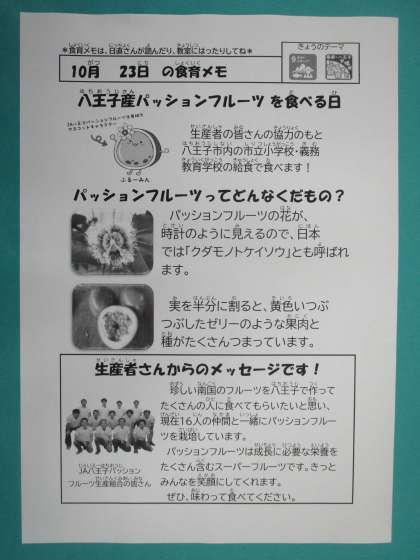 ＊食育メモは、日直さんが読んだり、教室にはったりしてね＊
きょうのテーマ
10月　23日　の食育メモ
八王子産パッションフルーツ を食べる日
JA八王子パッションフルーツ生産組合
マスコットキャラクター
ふるーみん
生産者の皆さんの協力のもと
八王子市内の市立小学校・義務
教育学校の給食で食べます！
パッションフルーツってどんなくだもの？
パッションフルーツの花が、
時計のように見えるので、日本
では「クダモノトケイソウ」とも呼ばれ
ます。
実を半分に割ると、黄色いつぶ
つぶしたゼリーのような果肉と
種がたくさんつまっています。
生産者さんからのメッセージです！
珍しい南国のフルーツを八王子で作って
たくさんの人に食べてもらいたいと思い、
現在16人の仲間と一緒にパッションフルー
ツを栽培しています。
パッションフルーツは成長に必要な栄養を
たくさん含むスーパーフルーツです。きっと
みんなを笑顔にしてくれます。
ぜひ、味わって食べてください。
JA八王子パッション
フルーツ生産組合の皆さん